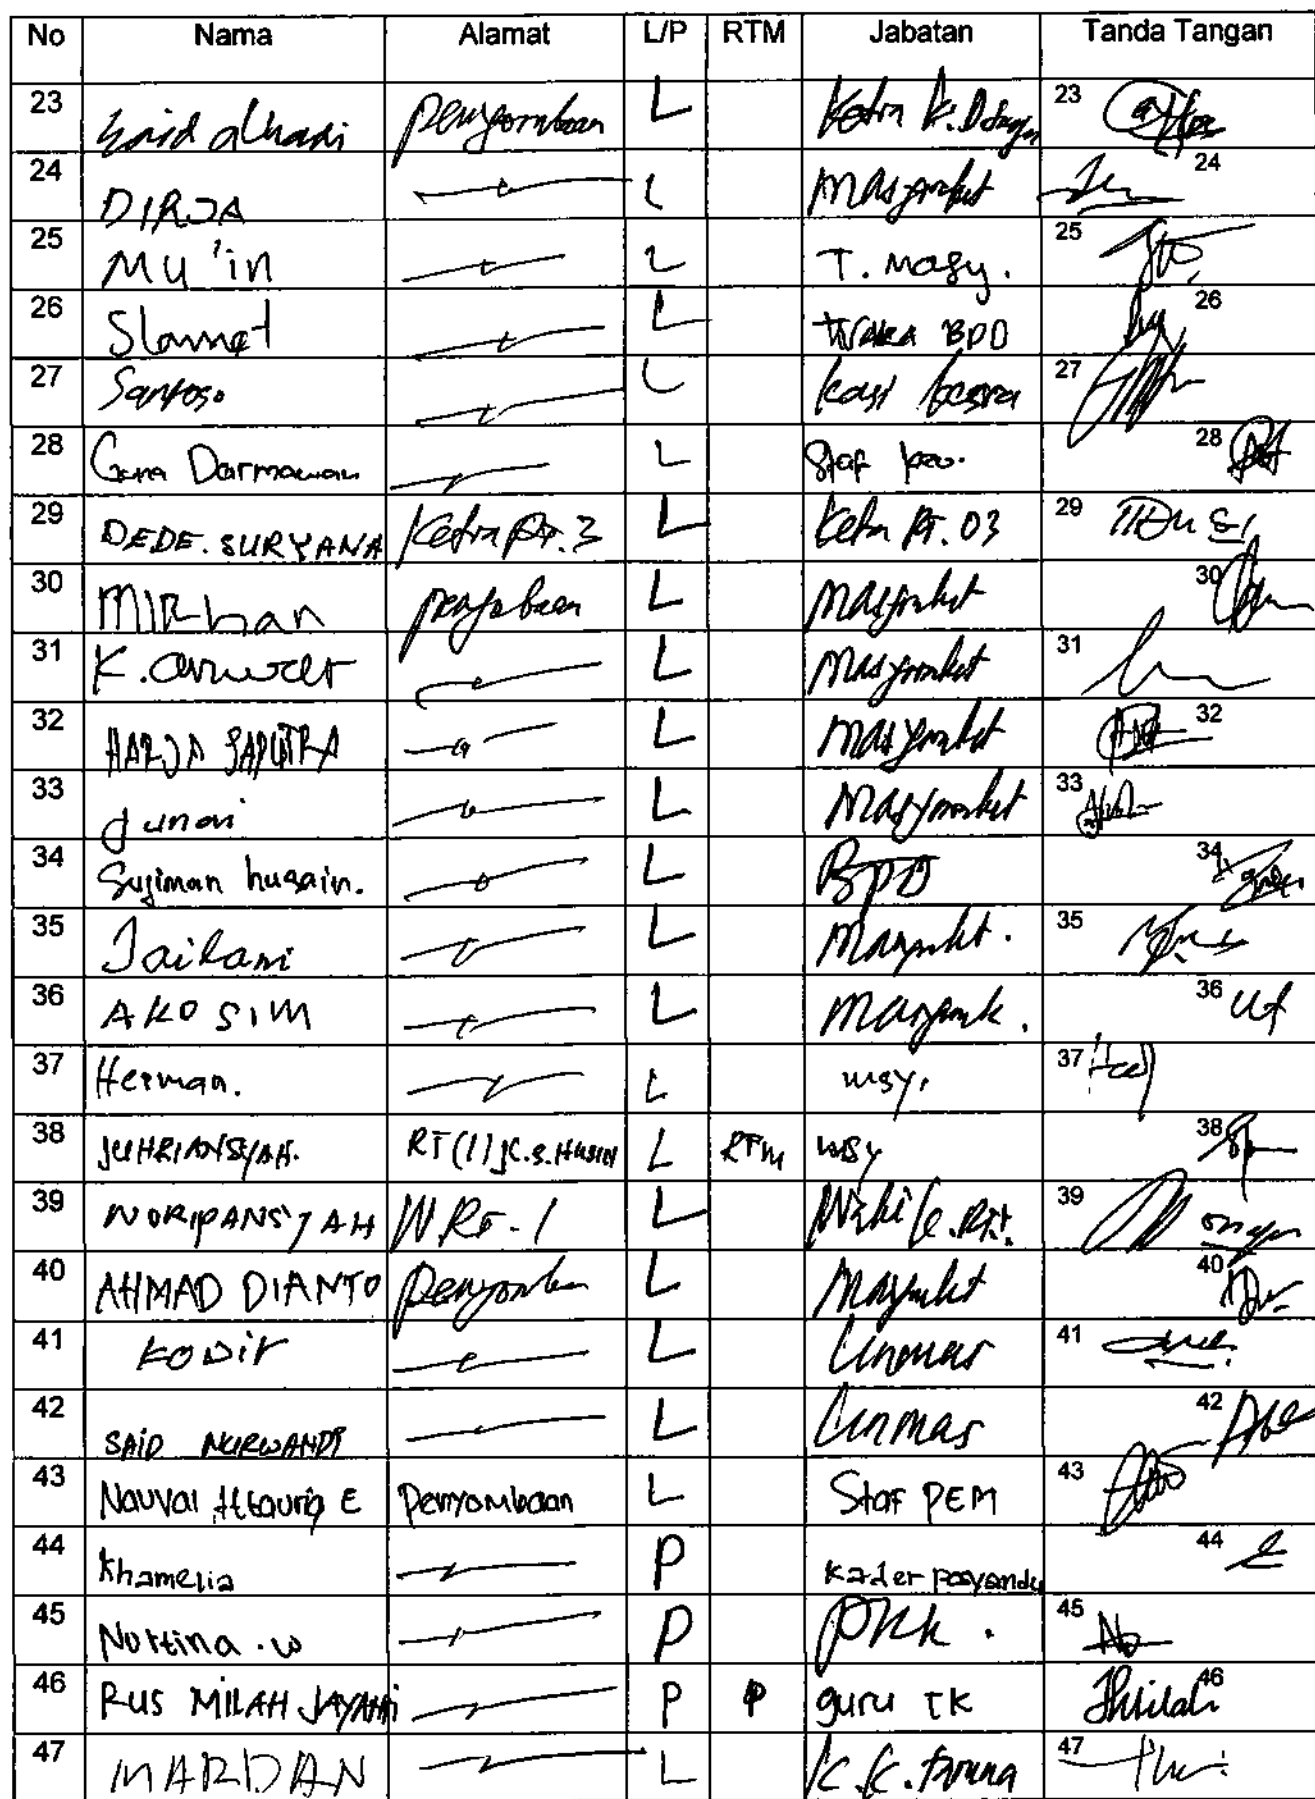 No Nama Alamat L/P RTM Jabatan Tanda Tangan
23 Said alhadi penyombaan L Ketua 23
24 DIRJA L Masyarakat 24
25 Mu'in L T. Masy. 25
26 Slamet L BPD 26
27 Santoso L kasi kesra 27
28 Darmawan L Staf 28
29 DEDE. SURYANA Ketua Rt. 3 L Ketua Rt. 03 29
30 MIRhan L Masyarakat 30
31 K. anwar L Masyarakat 31
32 HARJA SAPUTRA L Masyarakat 32
33 Junai L Masyarakat 33
34 Sujiman husain. L BPD 34
35 Jailani L Masyarakat. 35
36 AKOSIM L 36
37 Herman. L msy. 37
38 JUHRIANSYAH. RT (1) L RTM msy 38
39 NORIPANSYAH W.Rt. 1 L Wakil k. Rt. 39
40 AHMAD DIANTO L Masyarakat 40
41 KODir L Linmas 41
42 SAID NURWANDI L Linmas 42
43 Nauval E Penyombaan L Staf PEM 43
44 Khamelia P Kader posyandu 44
45 Nortina . w P PKK . 45
46 RUS MILAH JAYANTI P P guru TK 46
47 MARDAN L K.K. 47